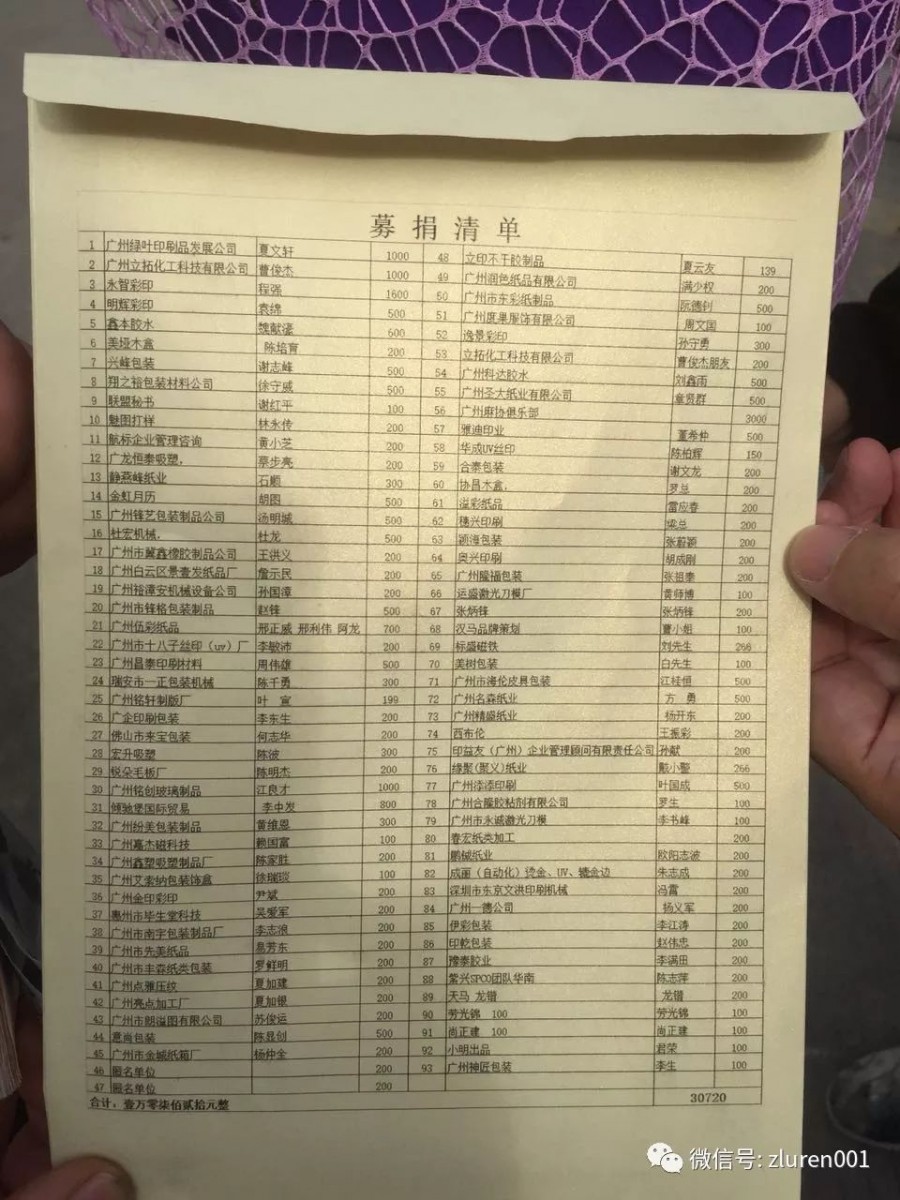 募捐清单
1 广州绿叶印刷品发展公司 夏文轩 1000 48 立印不干胶制品 夏云友 139
2 广州立拓化工科技有限公司 曹俊杰 1000 49 广州润色纸品有限公司 满少权 200
3 永智彩印 程强 1600 50 广州市东彩纸制品 阮德钊 500
4 明辉彩印 袁绵 500 51 广州度果服饰有限公司 周文国 100
5 鑫本胶水 魏献鎏 600 52 逸景彩印 孙守勇 300
6 美垭木盒 陈培育 200 53 立拓化工科技有限公司 曹俊杰朋友 200
7 兴峰包装 谢志峰 500 54 广州科达胶水 刘鑫雨 500
8 翔之裕包装材料公司 徐守威 500 55 广州圣大纸业有限公司 章贤群 500
9 联盟秘书 谢红平 100 56 广州麻协俱乐部 3000
10 魅图打样 林永传 200 57 雅迪印业 董希仲 500
11 航标企业管理咨询 黄小芝 200 58 华成UV丝印 陈柏辉 150
12 广龙恒泰吸塑. 蔡步亮 200 59 合泰包装 谢文龙 200
13 静燕峰纸业 石顺 300 60 协昌木盒. 罗总 200
14 金虹月历 胡图 500 61 溢彩纸品 雷应春 200
15 广州锋艺包装制品公司 汤明城 500 62 穗兴印刷 梁总 200
16 杜宏机械. 杜龙 500 63 颖海包装 张蔚颖 200
17 广州市冀鑫橡胶制品公司 王洪义 200 64 奥兴印刷 胡成刚 200
18 广州白云区景壹发纸品厂 詹示民 200 65 广州隆福包装 张祖泰 200
19 广州裕漳安机械设备公司 孙国漳 200 66 运盛激光刀模厂 黄师博 100
20 广州市锋格包装制品 赵锋 500 67 张炳锋 张炳锋 200
21 广州伍彩纸品 邢正威 邢利伟 阿龙 700 68 汉马品牌策划 曹小姐 100
22 广州市十八子丝印（uv）厂 李敏沛 200 69 标盛磁铁 刘先生 266
23 广州昌泰印刷材料 周伟雄 500 70 美树包装 白先生 100
24 瑞安市一正包装机械 陈千勇 300 71 广州市海伦皮具包装 江桂恒 500
25 广州铭轩制版厂 叶 寅 199 72 广州名森纸业 方 勇 500
26 广企印刷包装 李东生 200 73 广州精盛纸业 杨开东 200
27 佛山市来宝包装 何志华 200 74 西布伦 王振彩 200
28 宏升吸塑 陈波 300 75 印益友（广州）企业管理顾问有限责任公司 孙献 200
29 锐朵毛板厂 陈明杰 200 76 缘聚(聚义)纸业 戴小警 266
30 广州铭创玻璃制品 江良才 1000 77 广州添添印刷 叶国成 500
31 倾驰堡国际贸易 李中发 800 78 广州合隆胶粘剂有限公司 罗生 100
32 广州纷美包装制品 黄维恩 300 79 广州市永诚激光刀模 李书峰 100
33 广州嘉杰磁科技 赖国富 100 80 春宏纸类加工 200
34 广州鑫塑吸塑制品厂 陈家胜 200 81 鹏械纸业 欧阳志波 200
35 广州艾索纳包装饰盒 徐瑞琰 100 82 成丽（自动化）烫金、UV、镀金边 朱志成 200
36 广州金印彩印 尹斌 200 83 深圳市东京文洪印刷机械 冯霄 200
37 惠州市毕生堂科技 吴爱军 200 84 广州一德公司 杨义军 200
38 广州市南宇包装制品厂 李志浪 200 85 伊彩包装 李江涛 200
39 广州市先美纸品 息芳东 200 86 印乾包装 赵伟忠 200
40 广州市丰森纸类包装 罗鲜明 200 87 豫泰胶业 李满田 200
41 广州点雅压纹 夏加建 200 88 紫兴SPCO团队华南 陈志萍 200
42 广州亮点加工厂 夏加银 200 89 天马 龙锴 龙锴 200
43 广州市朗溢图有限公司 苏俊运 200 90 劳光锦 100 劳光锦 100
44 意尚包装 陈显创 500 91 尚正建 100 尚正建 100
45 广州市金城纸箱厂 杨仲金 200 92 小明出品 君荣 100
46 匿名单位 200 93 广州神匠包装 李生 100
47 匿名单位 200
合计：壹万零柒佰贰拾元整 30720
微信号: zluren001